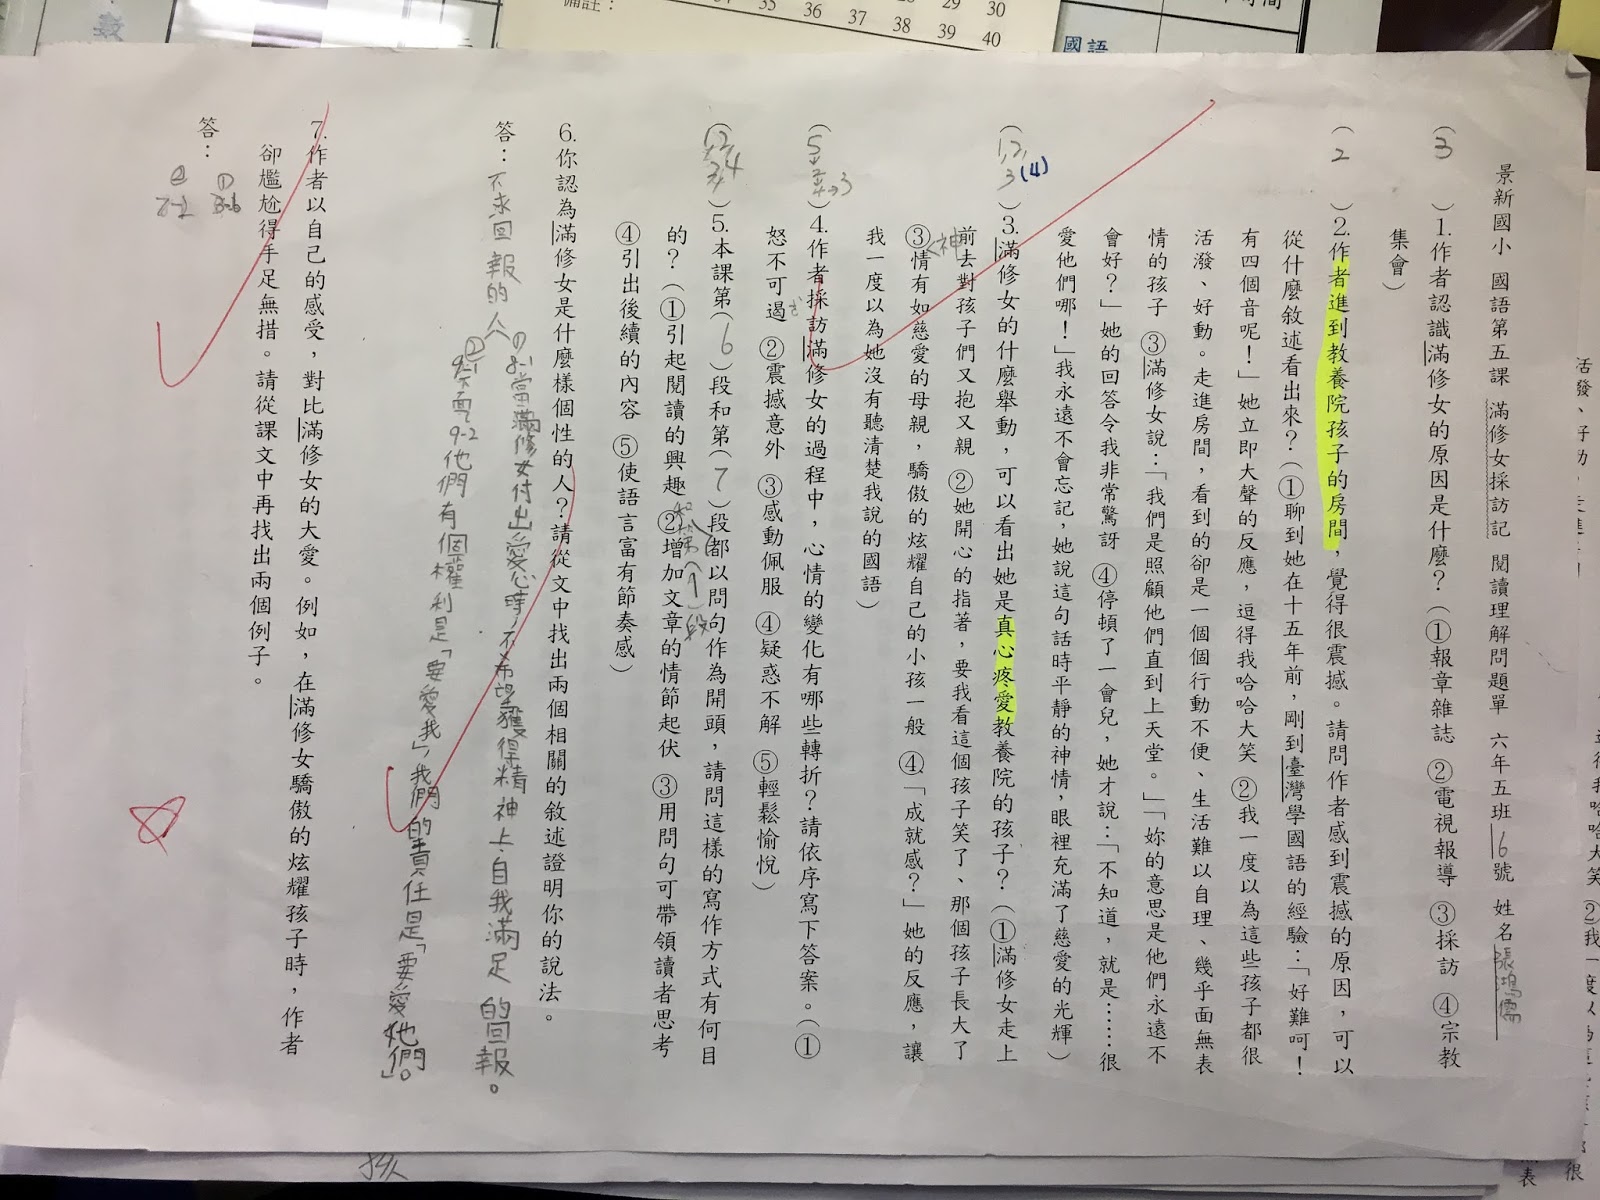 景新國小 國語第五課 滿修女採訪記 閱讀理解問題單 六年五班 16 號 姓名 張鴻儒
( 3 )1.作者認識滿修女的原因是什麼？(①報章雜誌 ②電視報導 ③採訪 ④宗教
集會)
( 2 )2.作者進到教養院孩子的房間，覺得很震撼。請問作者感到震撼的原因，可以
從什麼敘述看出來？(①聊到她在十五年前，剛到臺灣學國語的經驗：「好難呵！
有四個音呢！」她立即大聲的反應，逗得我哈哈大笑 ②我一度以為這些孩子都很
活潑、好動。走進房間，看到的卻是一個個行動不便、生活難以自理、幾乎面無表
情的孩子 ③滿修女說：「我們是照顧他們直到上天堂。」「妳的意思是他們永遠不
會好？」她的回答令我非常驚訝 ④停頓了一會兒，她才說：「不知道，就是……很
愛他們哪！」我永遠不會忘記，她說這句話時平靜的神情，眼裡充滿了慈愛的光輝)
( 1,2,3 (4) )3.滿修女的什麼舉動，可以看出她是真心疼愛教養院的孩子？(①滿修女走上
前去對孩子們又抱又親 ②她開心的指著，要我看這個孩子笑了、那個孩子長大了
③神情有如慈愛的母親，驕傲的炫耀自己的小孩一般 ④「成就感？」她的反應，讓
我一度以為她沒有聽清楚我說的國語)
( 5→2→4→3 )4.作者採訪滿修女的過程中，心情的變化有哪些轉折？請依序寫下答案。(①
怒不可遏 ②震撼意外 ③感動佩服 ④疑惑不解 ⑤輕鬆愉悅)
( 1,2,3,4 )5.本課第( 6 )段和第( 7 )段和第(1)段都以問句作為開頭，請問這樣的寫作方式有何目
的？(①引起閱讀的興趣 ②增加文章的情節起伏 ③用問句可帶領讀者思考
④引出後續的內容 ⑤使語言富有節奏感)
6.你認為滿修女是什麼樣個性的人？請從文中找出兩個相關的敘述證明你的說法。
答：不求回報的人 ①8-1當滿修女付出愛心時，不希望獲得精神上自我滿足的回報。
②9-1 9-2他們有個權利是「要愛我」，我們的責任是「要愛他們」。
7.作者以自己的感受，對比滿修女的大愛。例如，在滿修女驕傲的炫耀孩子時，作者
卻尷尬得手足無措。請從課文中再找出兩個例子。
答：① 3-6
②
備註：
35 36 37 38 39 40
29 30
國語